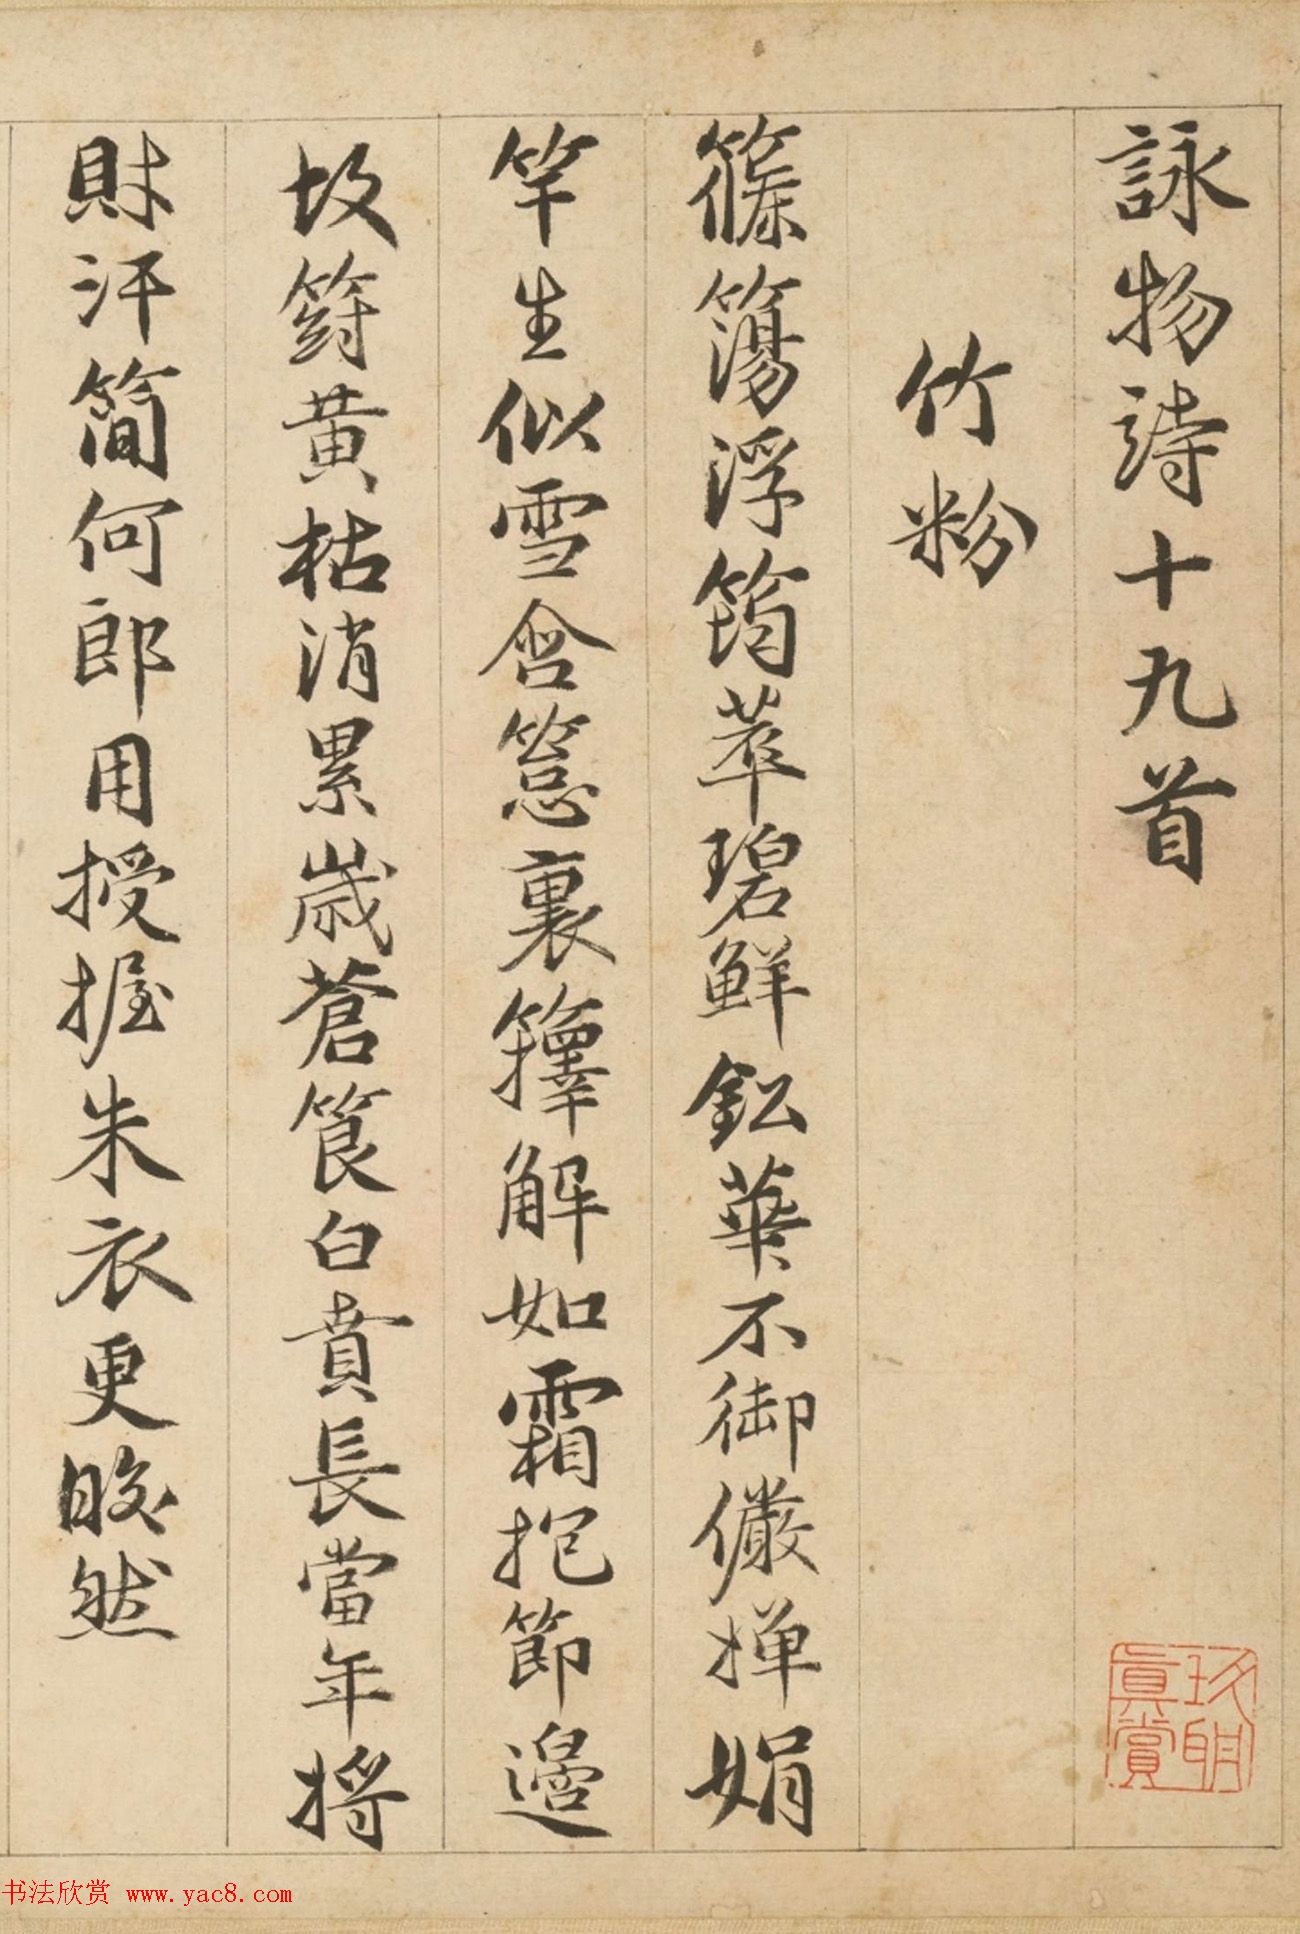 詠物詩十九首
竹粉
篠簜浮筠萃碧鮮鈆華不御儼撣娟
竿生似雪含篕裏籜解如霜抱節邊
坟箌黄枯消累歲蒼筤白賁長當年將
財汗簡何郎用授握朱衣更皎然
玖聃
真賞
书法欣赏 www.yac8.com